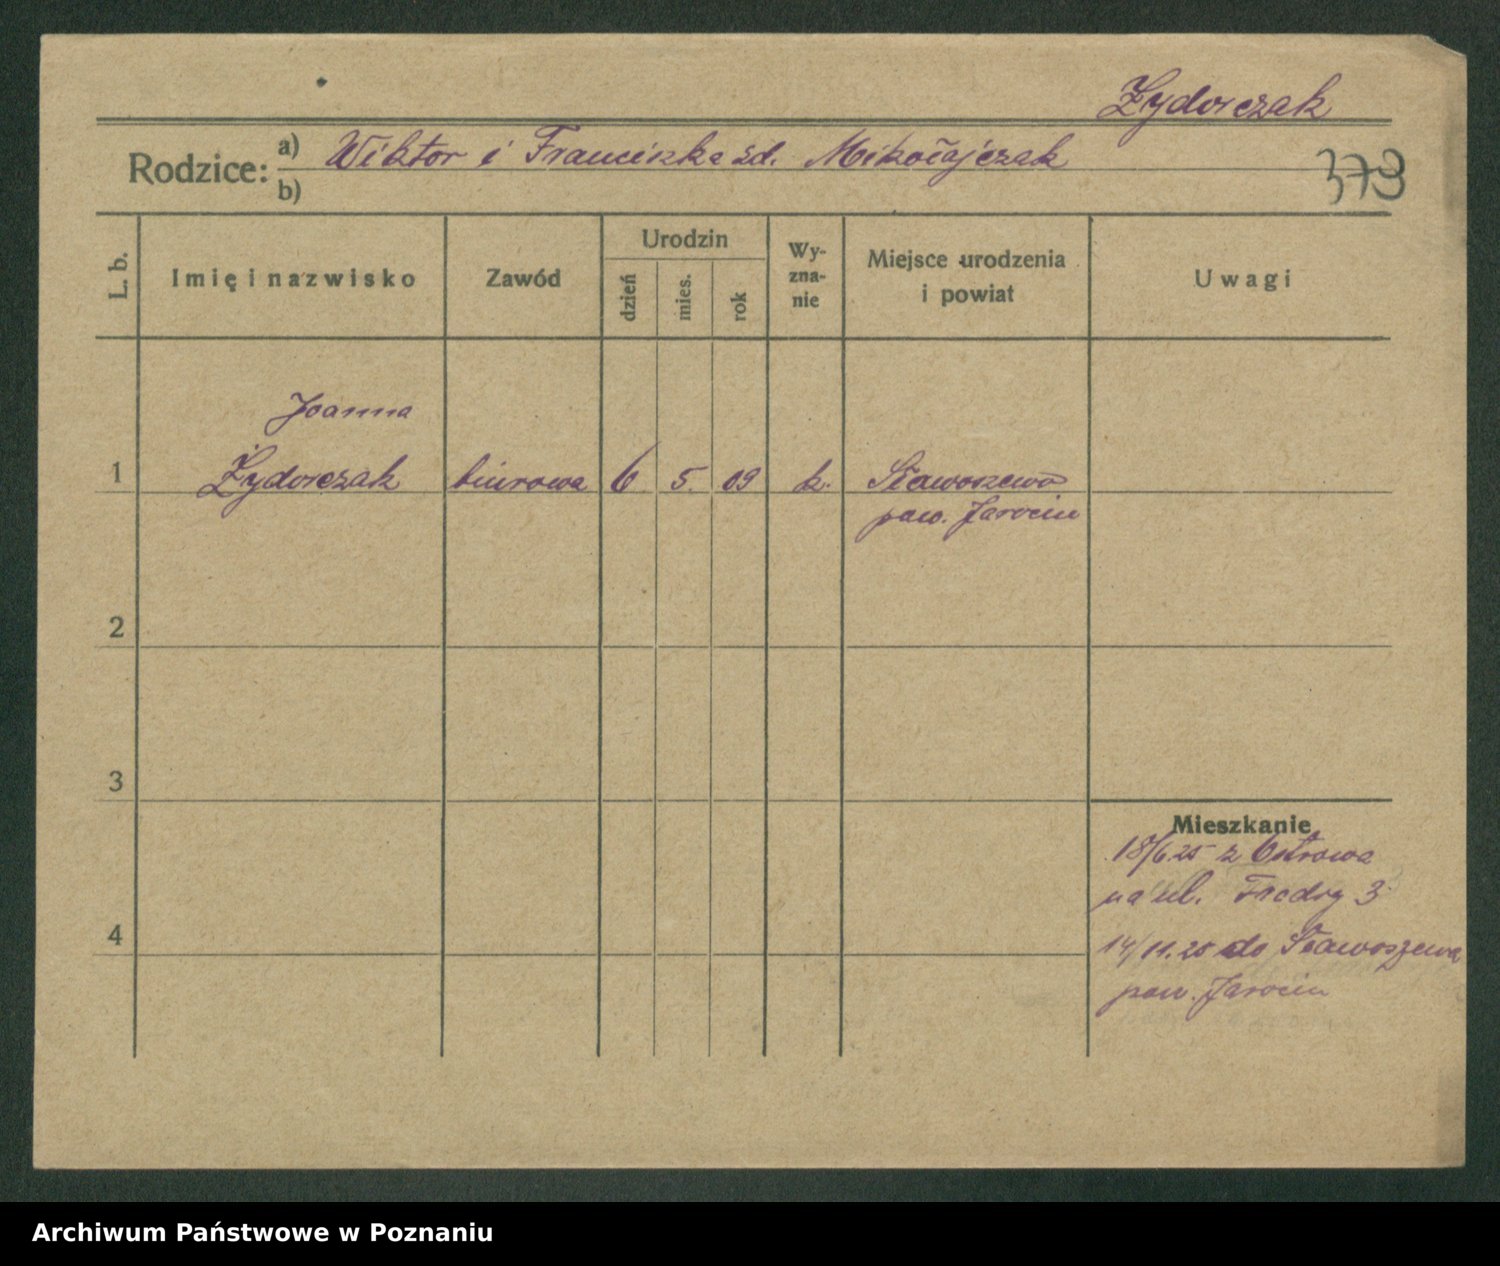 Żydorczak
Rodzice: a) Wiktor i Franciszka zd. Mikołajczak
b)
373
L. b.
Imię i nazwisko
Zawód
Urodzin
dzień
mies.
rok
Wy-
zna-
nie
Miejsce urodzenia
i powiat
Uwagi
Joanna
1 Żydorczak biurowa 6 5. 09 k. Sławoszewo
pow. Jarocin
2
3
Mieszkanie
18/6.25 z Ostrowa
na ul. Fredry 3
4
14/11.25 do Sławoszewa
pow. Jarocin
Archiwum Państwowe w Poznaniu